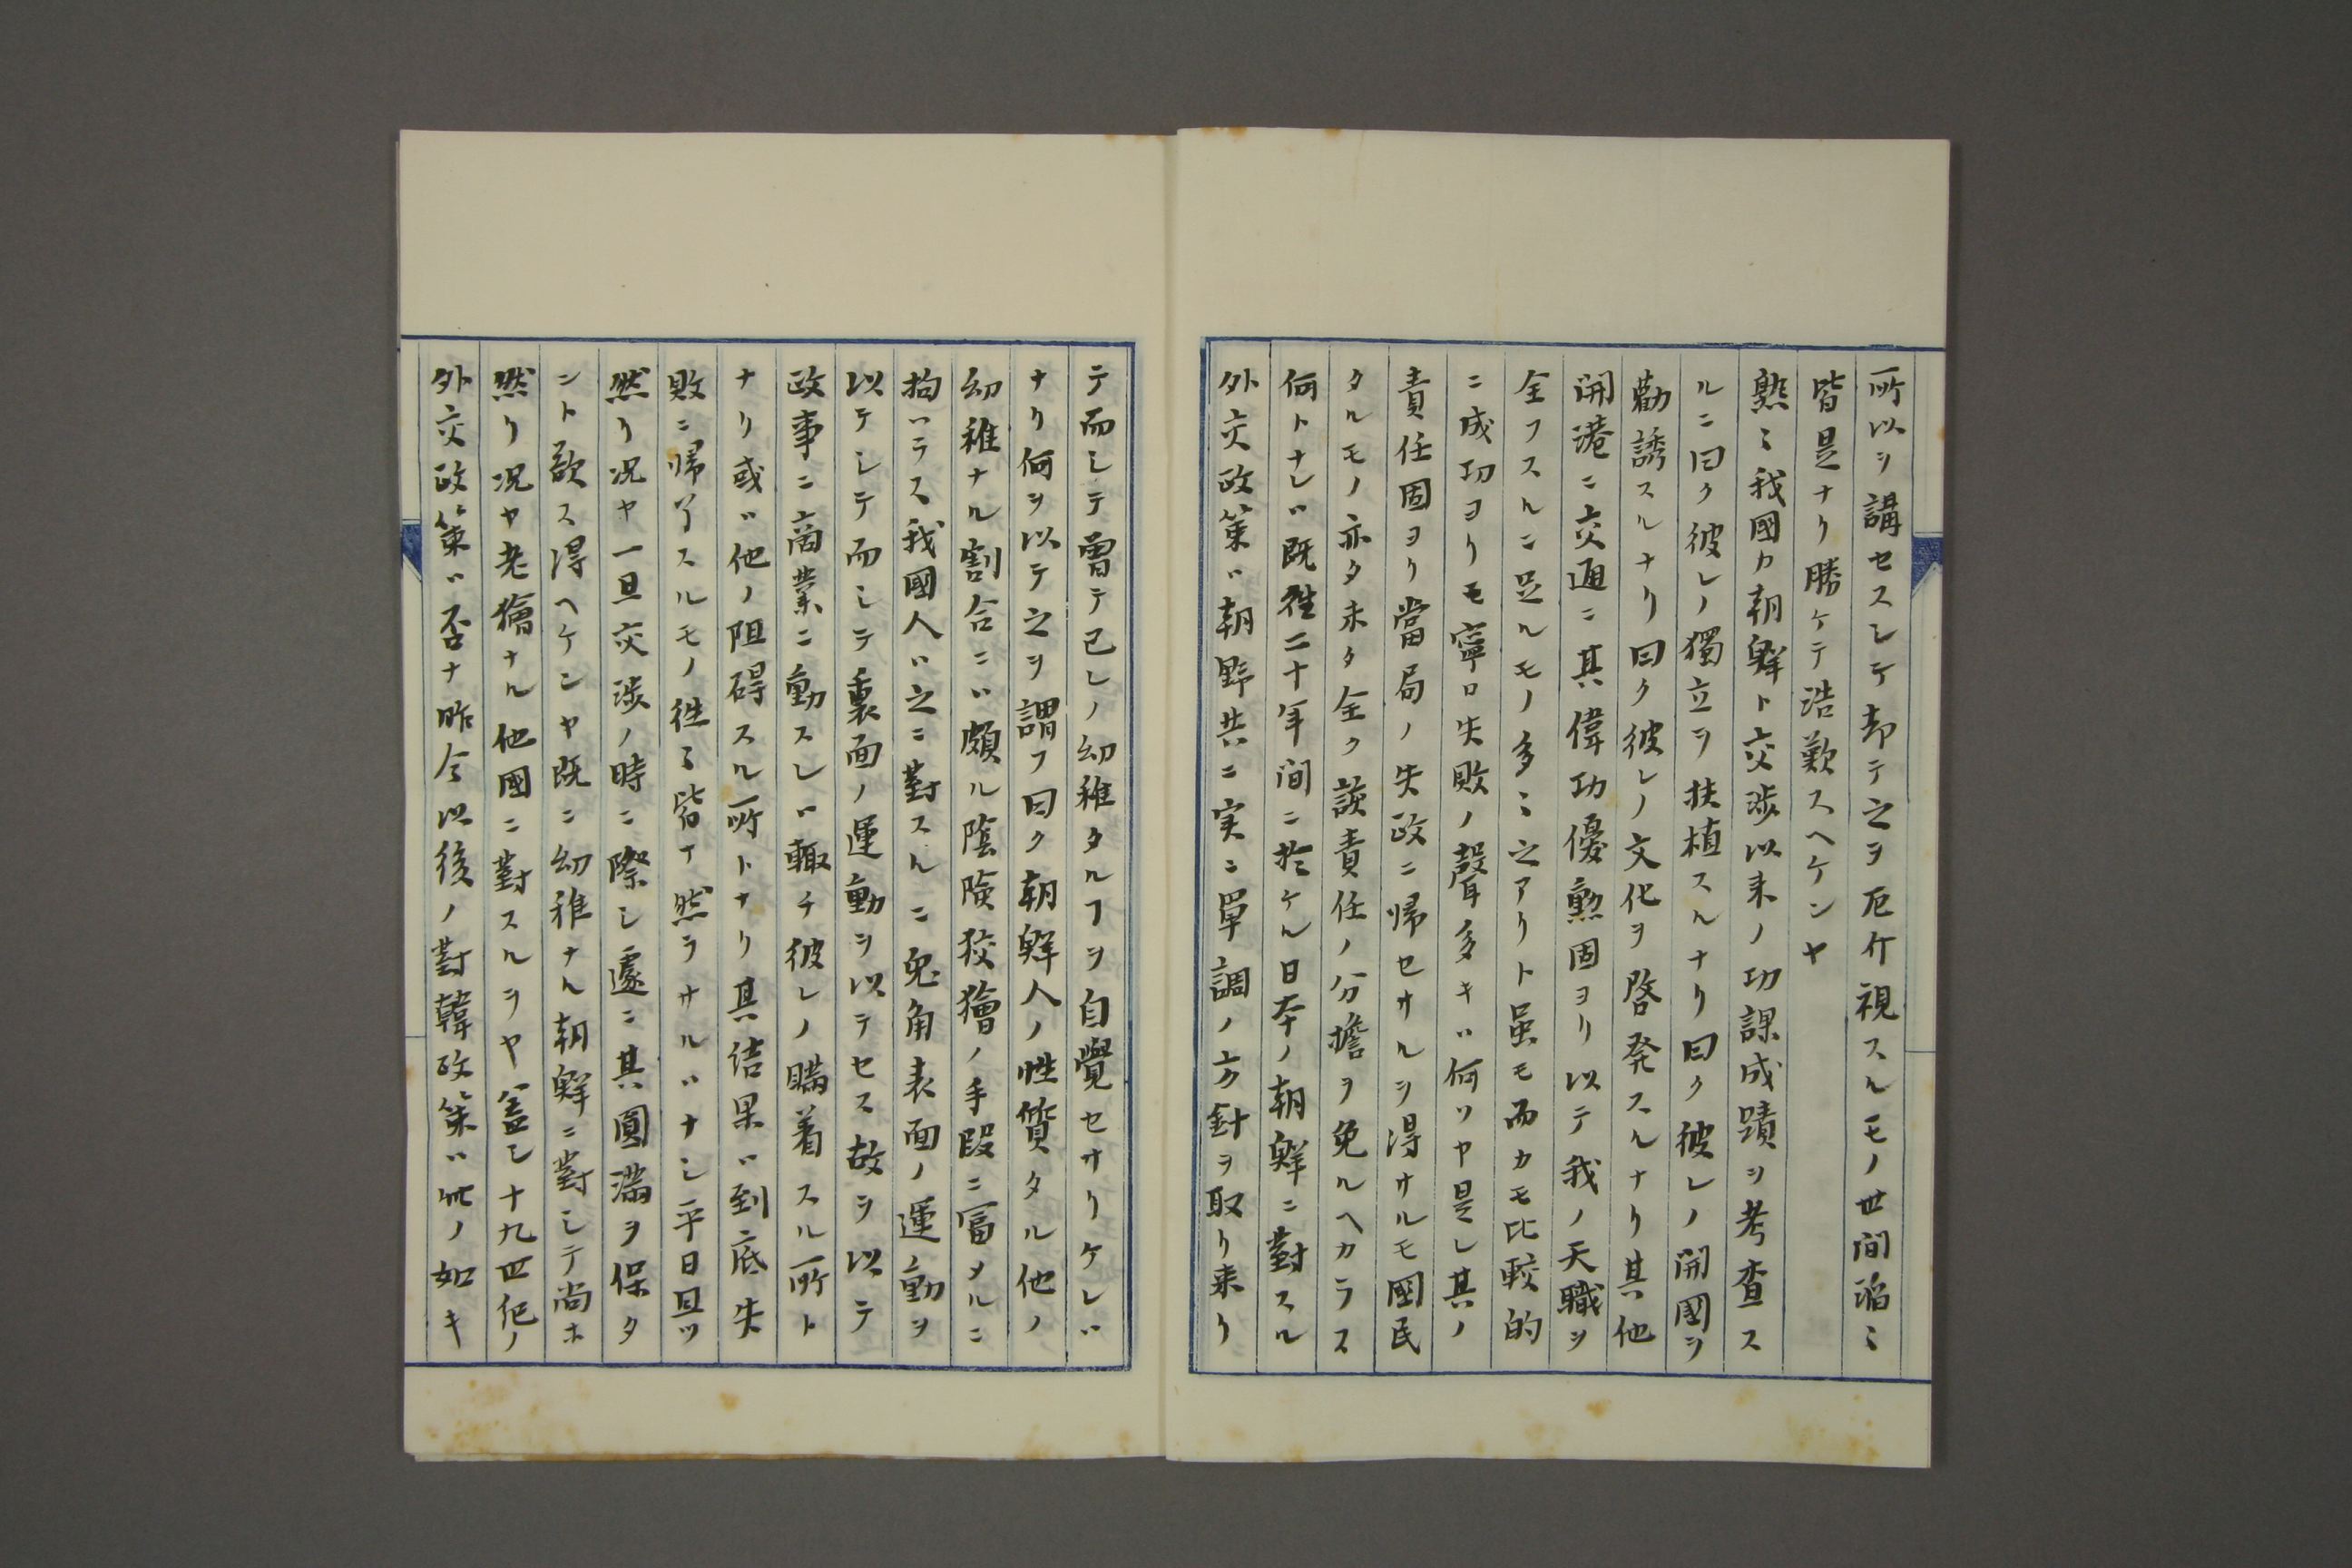 所以ヲ講セスシテ却テ之ヲ厄介視スルモノ世間滔ミ
皆是ナリ勝ケテ浩歎スヘケンヤ
熟ミ我國カ朝鮮ト交渉以来ノ功課成蹟ヲ考査ス
ルニ曰ク彼レノ獨立ヲ扶植スルナリ曰ク彼レノ開國ヲ
勸誘スルナリ曰ク彼レノ文化ヲ啓発スルナリ其他
開港ニ交通ニ其偉功優勲固ヨリ以テ我ノ天職ヲ
全フスルニ足ルモノ多ミ之アリト虽モ而カモ比較的
ニ成功ヨリモ寧ロ失敗ノ聲多キハ何ソヤ是レ其ノ
責任固ヨリ當局ノ失政ニ帰セサルヲ得サルモ國民
タルモノ亦タ未タ全ク該責任ノ分擔ヲ免ルヘカラス
何トナレハ既徃二十年间ニ於ケル日本ノ朝鮮ニ對スル
外交政策ハ朝野共ニ実ニ單調ノ方針ヲ取リ来リ
テ而シテ曽テ己レノ幼稚タルヿヲ自覺セサリケレハ
ナリ何ヲ以テ之ヲ謂フ曰ク朝鮮人ノ性質タル他ノ
幼稚ナル割合ニハ頗ル陰險狡獪ノ手段ニ冨メルニ
拘ハラス我國人ハ之ニ對スルニ兎角表面ノ運動ヲ
以テシテ而シテ裏面ノ運動ヲ以テセス故ヲ以テ
政事ニ商業ニ動スレハ輙チ彼レノ瞞着スル所ト
ナリ或ハ他ノ阻碍スル所トナリ其結果ハ到底失
敗ニ帰了スルモノ徃ミ皆ナ然ラサルハナシ平日且ツ
然リ况ヤ一旦交渉ノ時ニ際シ遽ニ其圓滿ヲ保タ
ント欲ス得ヘケンヤ既ニ幼稚ナル朝鮮ニ對シテ尚ホ
然リ况ヤ老獪ナル他國ニ對スルヲヤ盖シ十九世紀ノ
外交政策ハ否ナ昨今以後ノ對韓政策ハ此ノ如キ